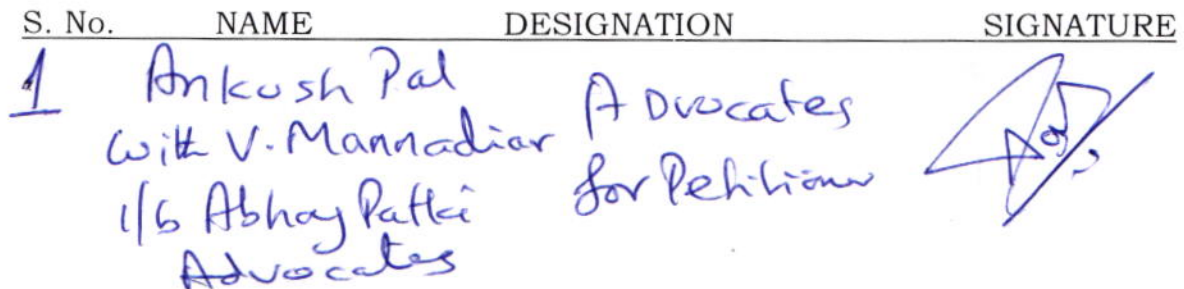 S. No. NAME DESIGNATION SIGNATURE
1 Ankush Pal
with V. Mannadiar
i/b Abhay Patki
Advocates
Advocates
for Petitioner